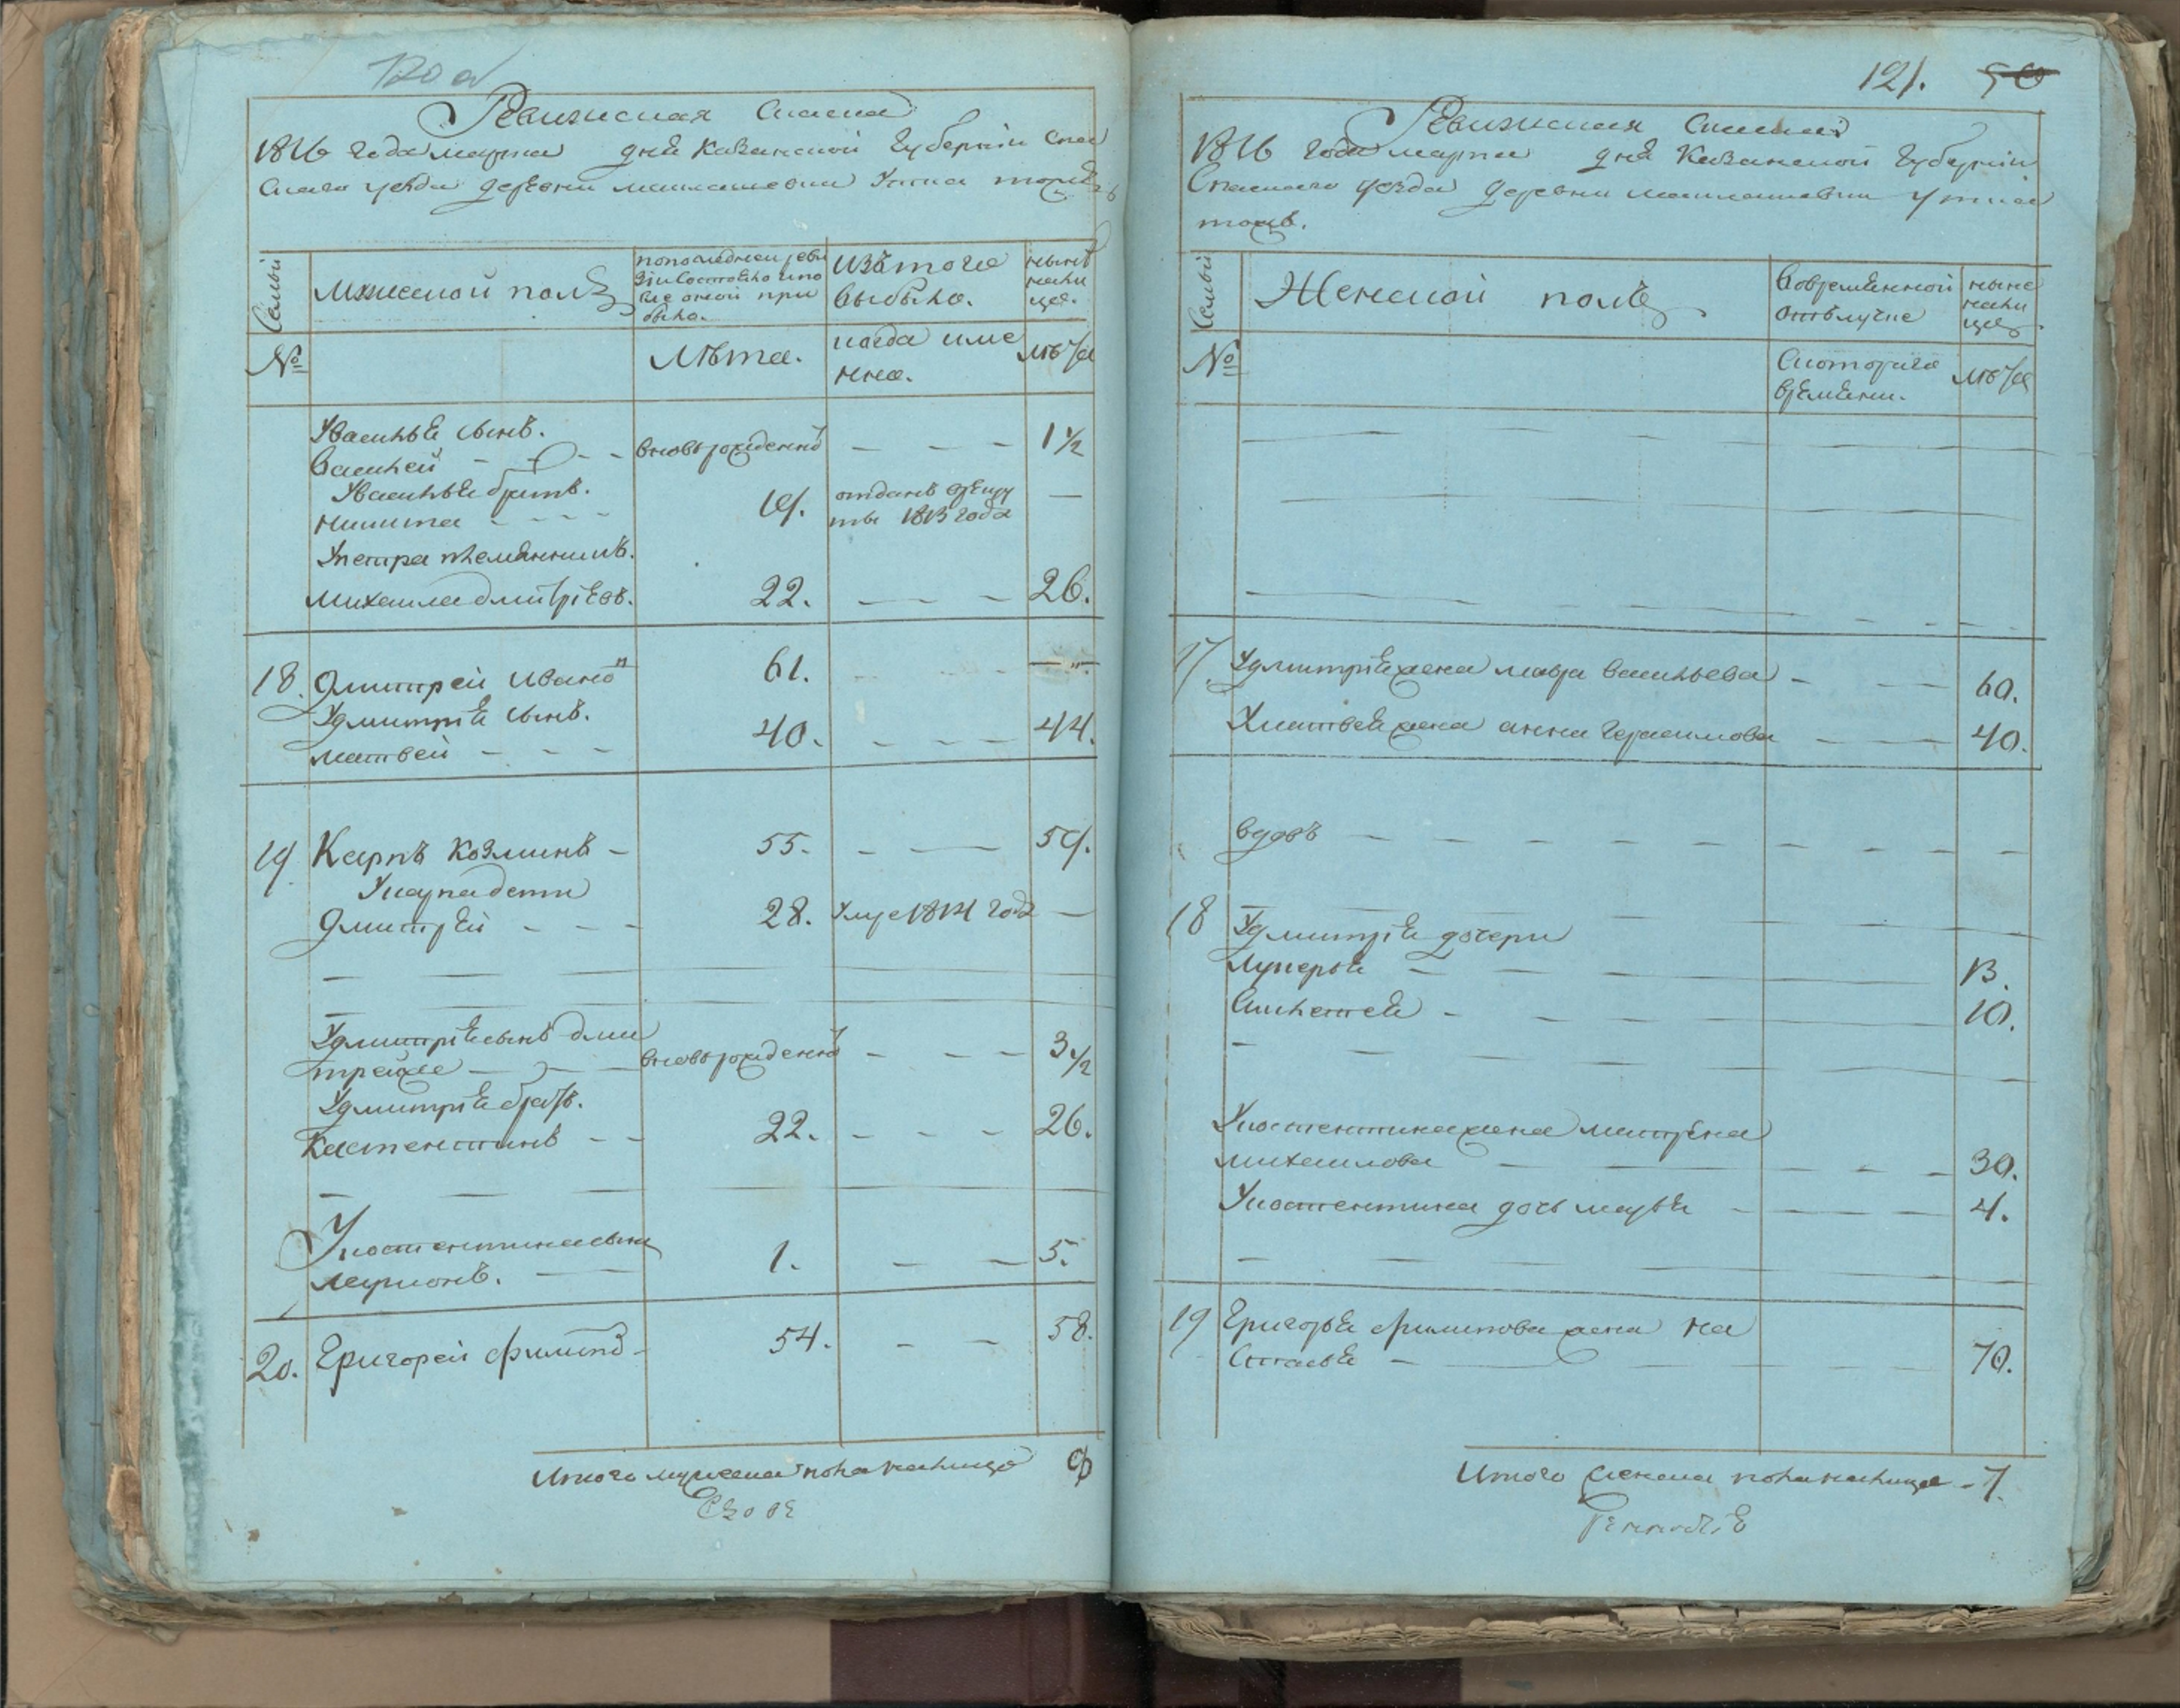 120 а
Ревижская Сказка
1816 года марта дня Казанской Губернии Спас
скаго уезда деревни
Семьи
Мужеской полъ
пополедней реви
зiи состояло ипо
сле оной при
было.
изъ того
выбыло.
ныне
нали
цо.
№
Лѣта.
когда име
нно.
лѣта
Увасилья сынъ.
Василей
вновьрожденной
1 1/2
Увасилья братъ.
Никита
19.
отданъ врекру
ты 1813 года
Упетра племянникъ.
Михайла дмитрiевъ.
22.
26.
18.
Дмитрей Ивановъ
61.
Удмитрiя сынъ.
матвей
40.
44.
19
Карпъ Козминъ
55.
59.
Укарпа дети
Дмитрей
28.
умре 1814 года
Удмитрiя сынъ дми
трейже
вновьрожденной
3 1/2
Удмитрiя братъ.
Костентинъ
22.
26.
Укостентина сынъ
ларионъ.
1.
5.
20.
Григорей филипов
54.
58.
Итого мужеска пола налицо 9
121. 50
Ревижская Сказка
1816 года марта дня Казанской Губернии
Спаскаго уезда деревни
тожъ.
Семьи
Женской полъ
Вовременной
отълучке
ныне
нали
цо
№
Скоторого
времени.
лѣта
17.
Удмитрiя жена мавра васильева
60.
Уматвея жена анна герасимова
40.
вдовъ
18
Удмитрiя дочери
лукерья
13.
10.
Укостентина жена матрена
михайлова
30.
Укостентина дочь марья
4.
19
Григорья филипова жена На
стасья
70.
Итого женска пола налицо - 7.